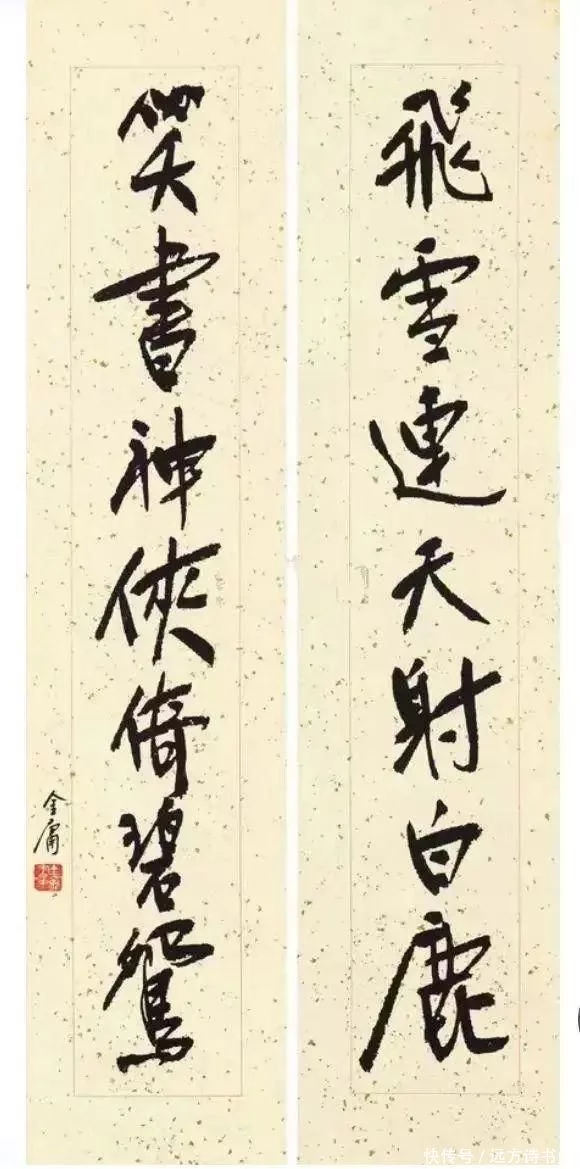 飛雪連天射白鹿
笑書神俠倚碧鴛
金庸
快传号/远方诗书